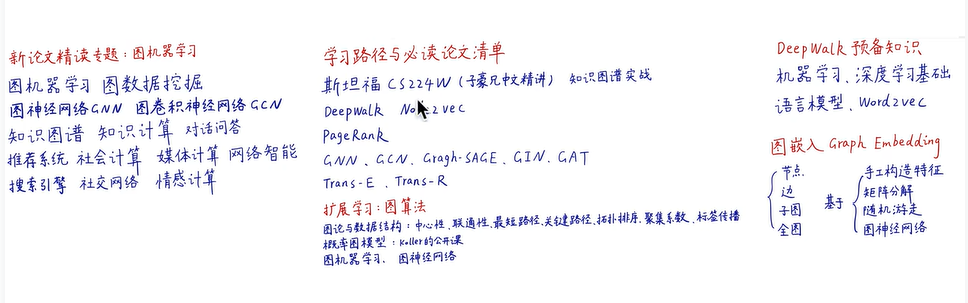 新论文精读专题:图机器学习
图机器学习 图数据挖掘
图神经网络GNN 图卷积神经网络GCN
知识图谱 知识计算 对话问答
推荐系统 社会计算 媒体计算 网络智能
搜索引擎 社交网络 情感计算
学习路径与必读论文清单
斯坦福CS224W(子豪兄中文精讲) 知识图谱实战
Deepwalk Node2vec
PageRank
GNN、GCN、Gragh-SAGE、GIN、GAT
Trans-E、Trans-R
扩展学习:图算法
图论与数据结构:中心性、联通性、最短路径、关键路径、拓扑排序、聚集系数、标签传播
概率图模型:Koller的公开课
图机器学习、图神经网络
DeepWalk 预备知识
机器学习、深度学习基础
语言模型、Word2vec
图嵌入 Graph Embedding
节点
边
子图
全图
基于
手工构造特征
矩阵分解
随机游走
图神经网络